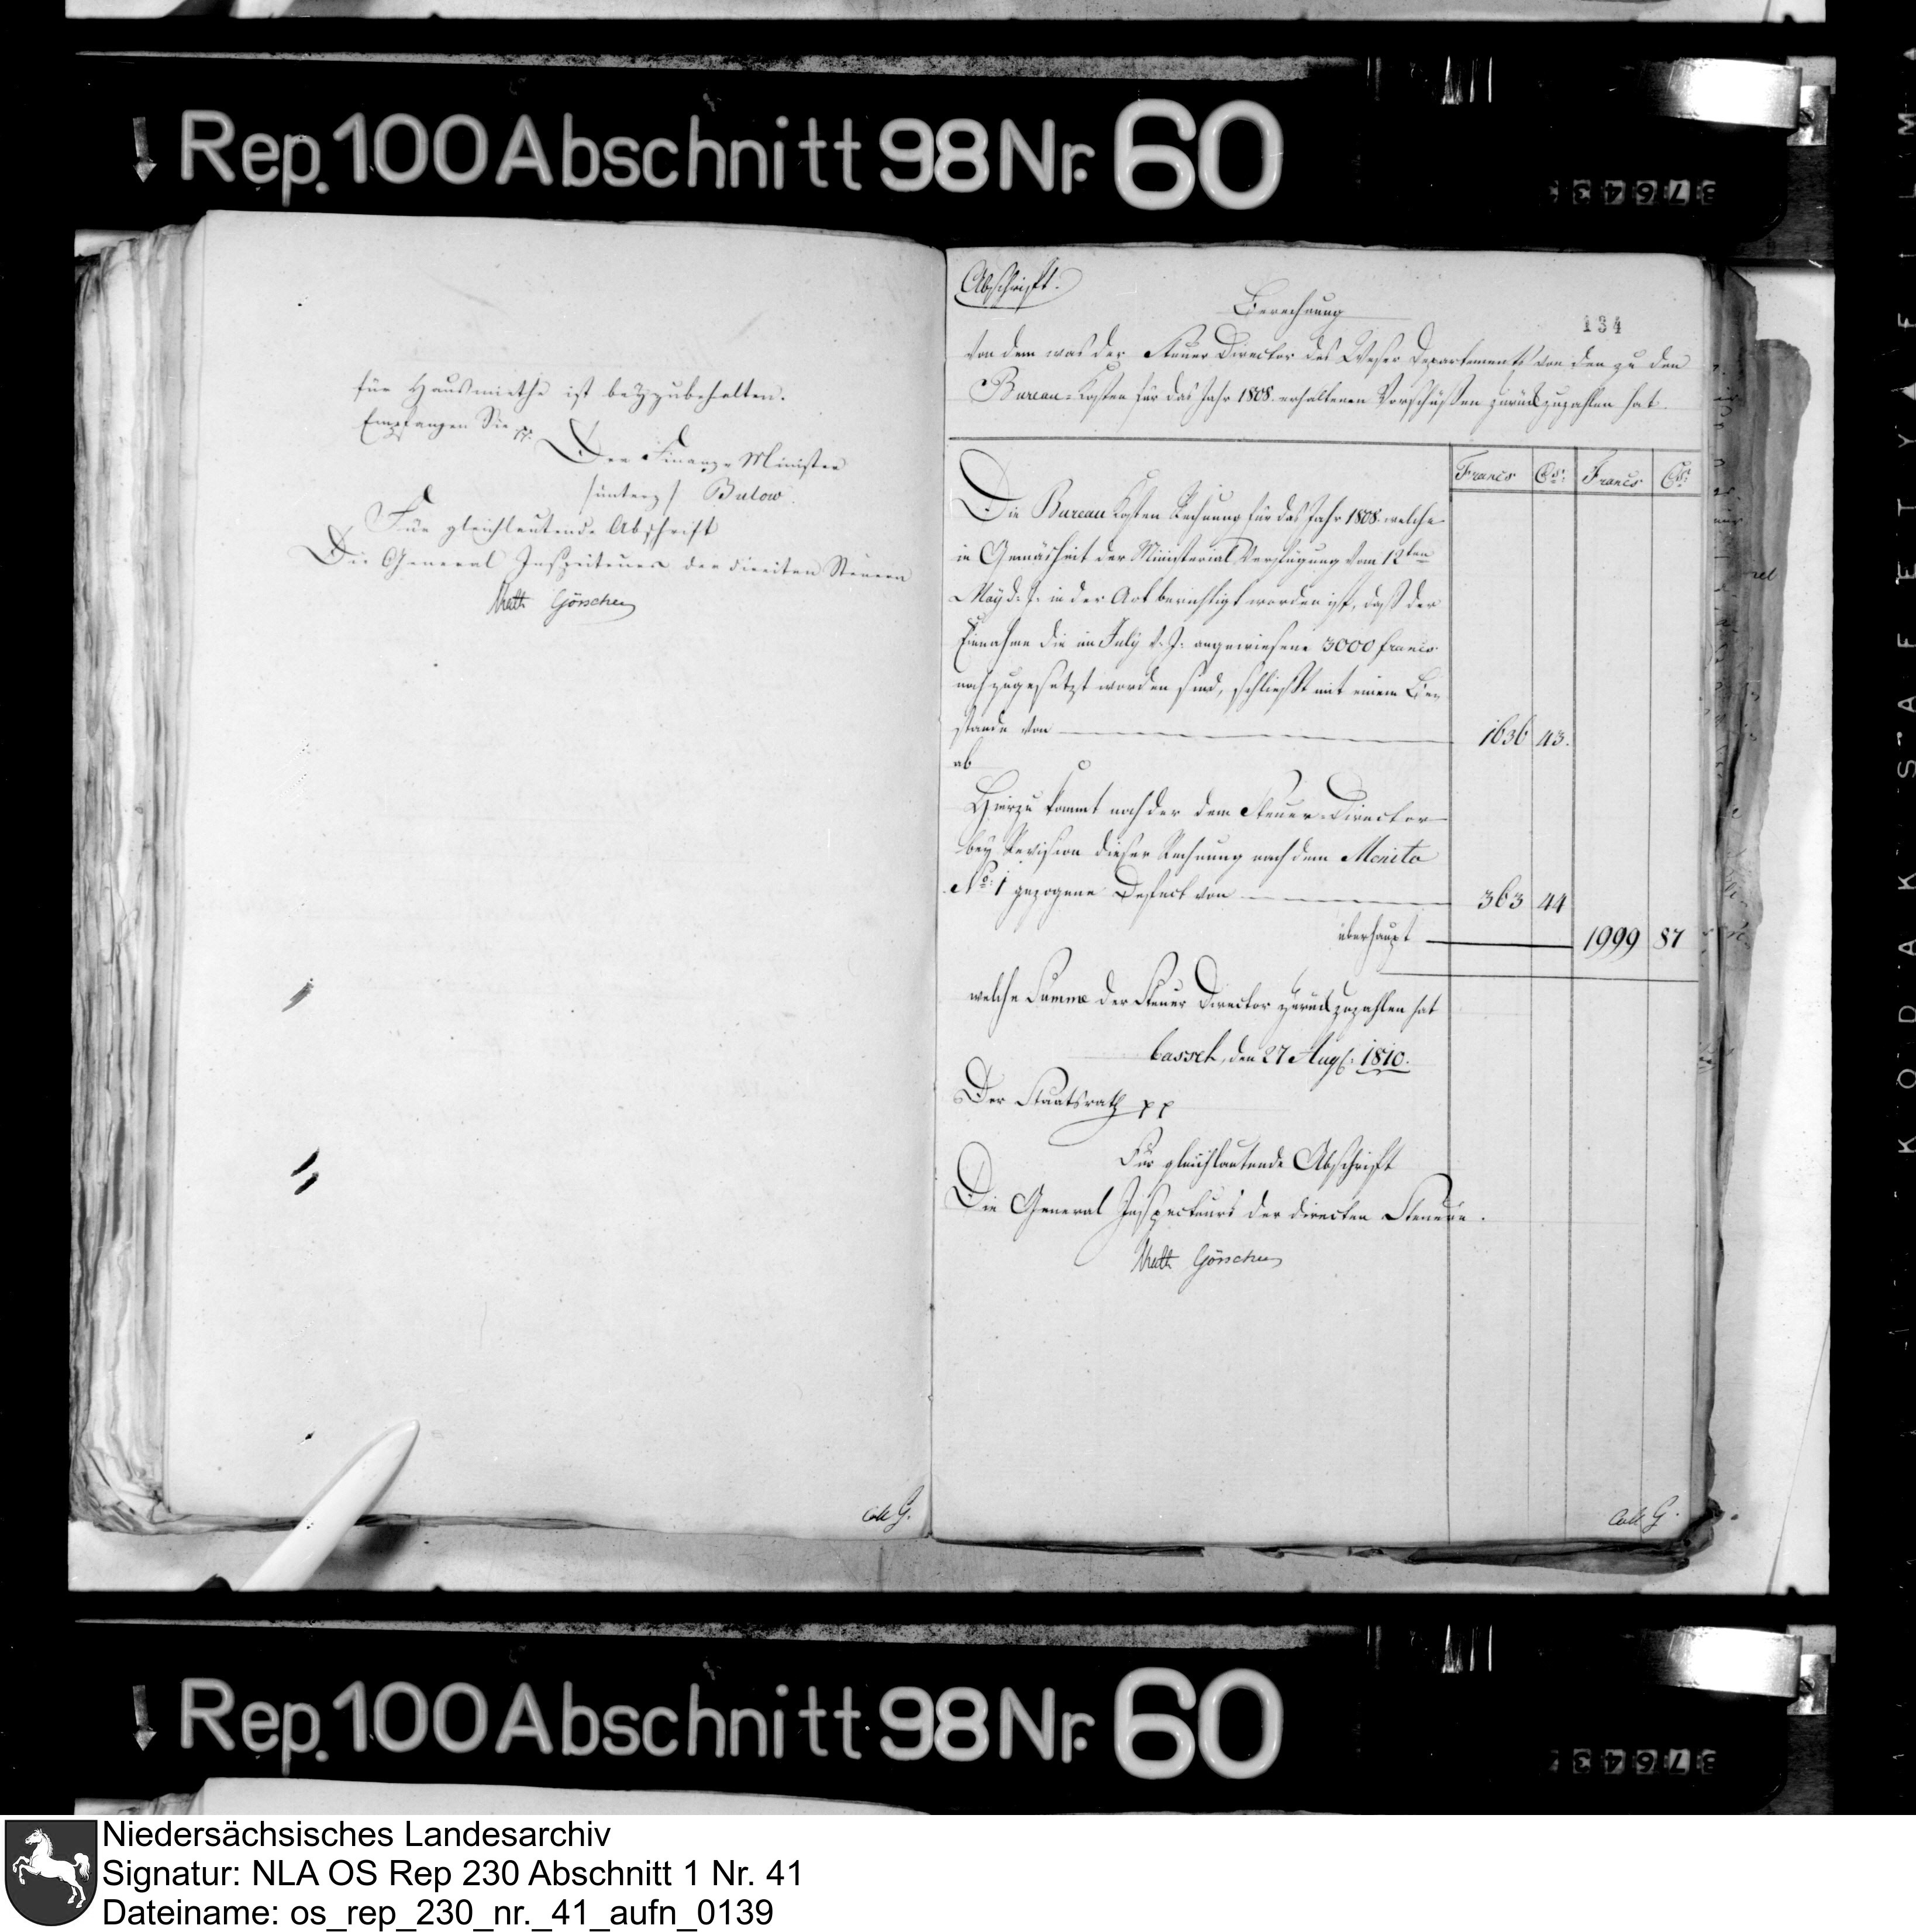 Rep. 100 Abschnitt 98 Nr. 60
für Hausmiethe ist beyzubehalten.
Empfangen Sie pp.
Der Finanz-Minister
/unterz/ Bulow.
Für gleichlautende Abschrift
Die General Inspecteurs der directen Steuern
Göschen
Coll G.
Abschrift.
Berechnung
134
von dem was der Steuer Director des Weser Departements von den zu den
Bureau-Kosten für das Jahr 1808. erhaltenen Vorschüssen zurückzuzahlen hat.
Francs Cs: Francs Cs:
Die Bureau Kosten Rechnung für das Jahr 1808. welche
in Gemäsheit der Ministerial Verfügung vom 12ten
May d. J. in der Art berichtigt worden ist, daß der
Einnahme die im July d. J. angewiesene 3000 francs
noch zugesetzt worden sind, schließt mit einem Be-
stande von 1636 43.
ab
Hierzu kommt noch der dem Steuer-Director
bey Revision dieser Rechnung nach dem Monito
No: 1 gezogene Defect von 363 44
überhaupt 1999 87
welche Summe der Steuer Director zurückzuzahlen hat
Cassel, den 27 Aug: 1810.
Der Staatsrath pp
Für gleichlautende Abschrift
Die General Inspecteurs der directen Steuern.
Göschen
Coll G.
Rep. 100 Abschnitt 98 Nr. 60
KODAK SAFETY FILM
Niedersächsisches Landesarchiv
Signatur: NLA OS Rep 230 Abschnitt 1 Nr. 41
Dateiname: os_rep_230_nr._41_aufn_0139